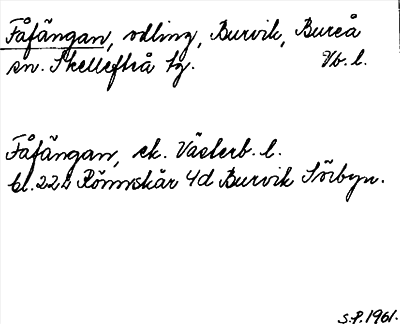 Fåfängan, odling, Burvik, Bureå
sn. Skellefteå tg. Vb. l.
Fåfängan, ek. Västerb. l.
bl. 22 L Rönnskär 4d Burvik Sörbyn.
S.P. 1961.